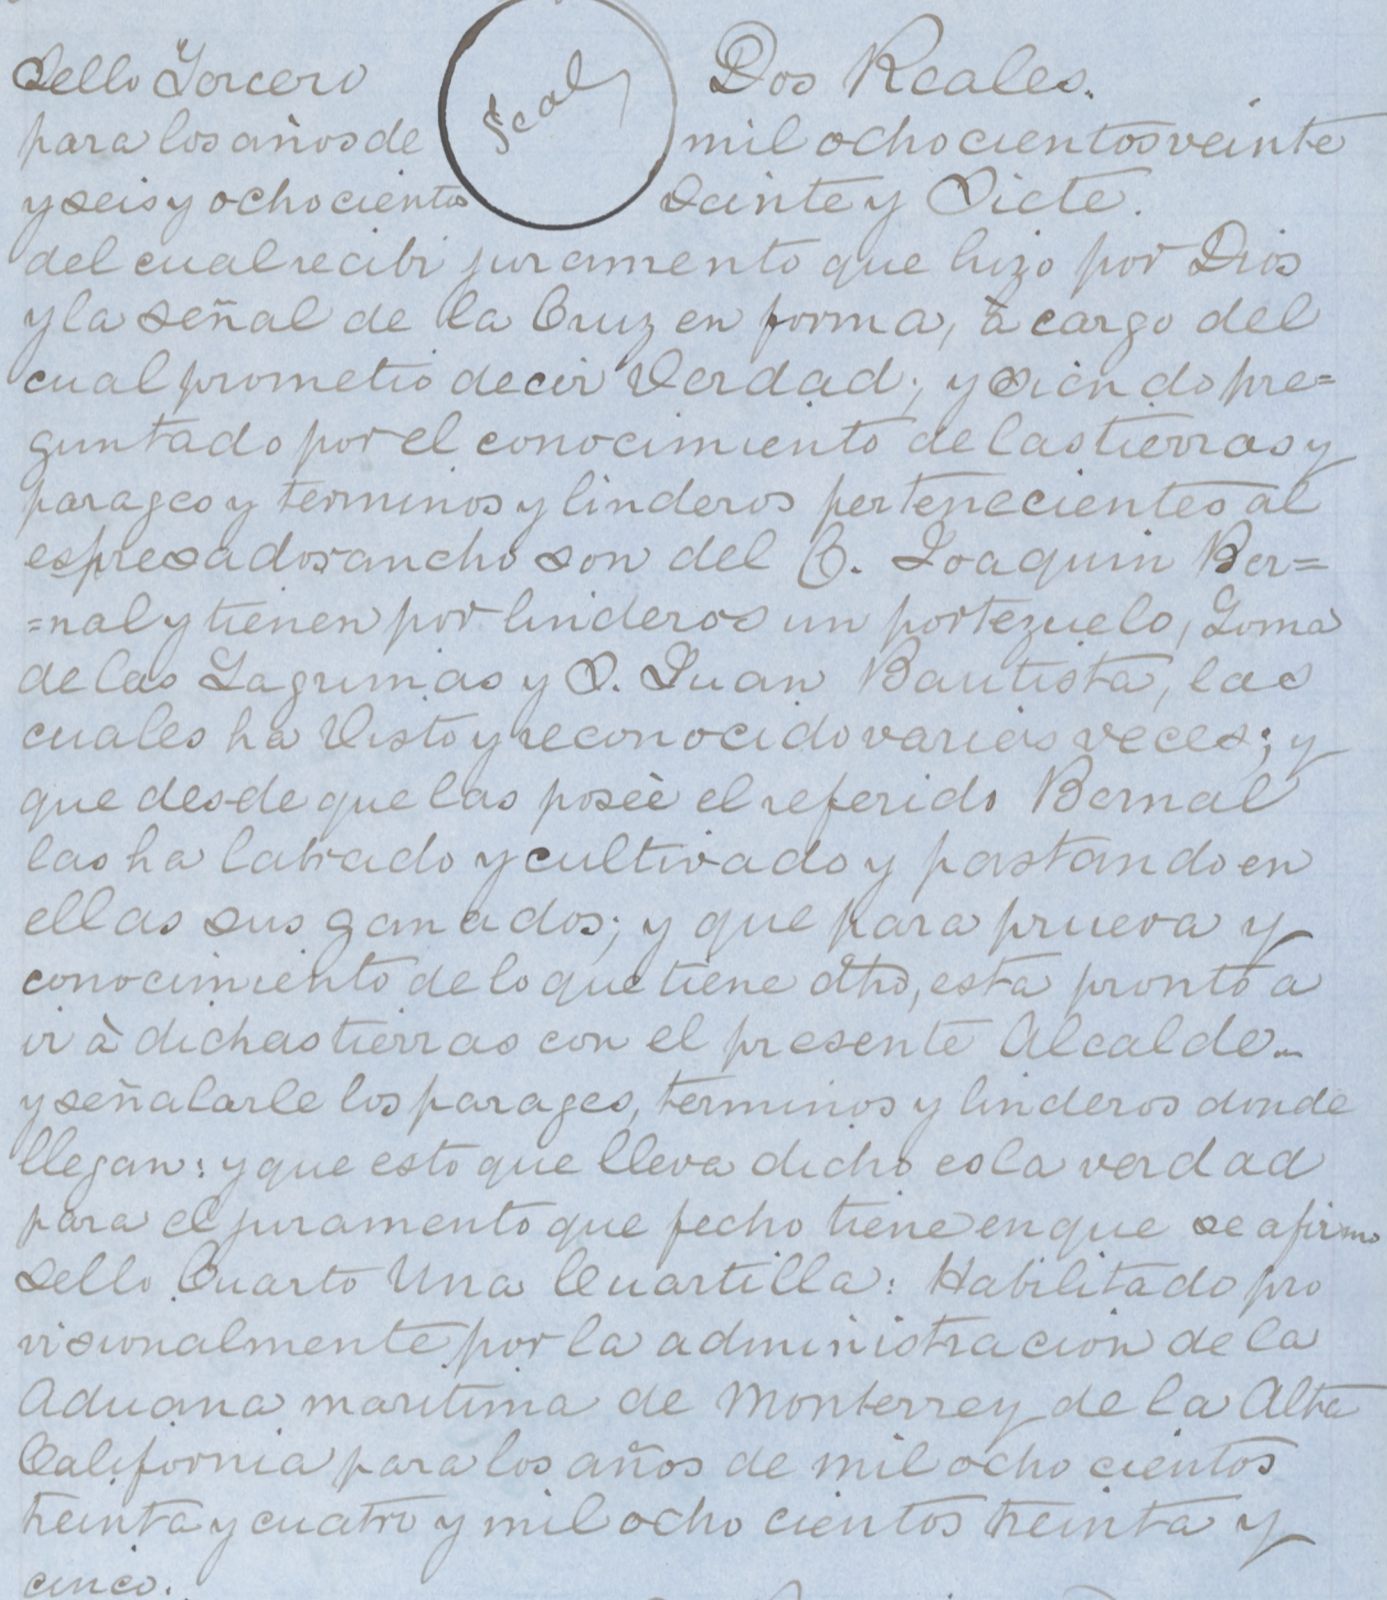 Sello Tercero Seal Dos Reales.
para los años de mil ochocientos veinte
y seis y ochocientos veinte y Siete.
del cual recibi juramento que hizo por Dios
y la señal de la Cruz en forma, à cargo del
cual prometio decir Verdad; y siendo pre=
guntado por el conocimiento de las tierras y
parages y terminos y linderos pertenecientes al
espresado rancho son del C. Joaquin Ber=
=nal y tienen por linderos un portezuelo, Loma
de las Lagrimas y S. Juan Bautista, las
cuales ha Visto y reconocido varias veces; y
que desde que las poseè el referido Bernal
las ha labrado y cultivado y pastando en
ellas sus ganados; y que para prueva y
conocimiento de lo que tiene dho, esta pronto a
ir à dichas tierras con el presente Alcalde
y señalarle los parages, terminos y linderos donde
llegan: y que esto que lleva dicho es la verdad
para el juramento que fecho tiene en que se afirmo
Sello Cuarto Una Cuartilla: Habilitado pro
visionalmente por la administracion de la
Aduana maritima de Monterrey de la Alta
California para los años de mil ocho cientos
treinta y cuatro y mil ocho cientos treinta y
cinco.